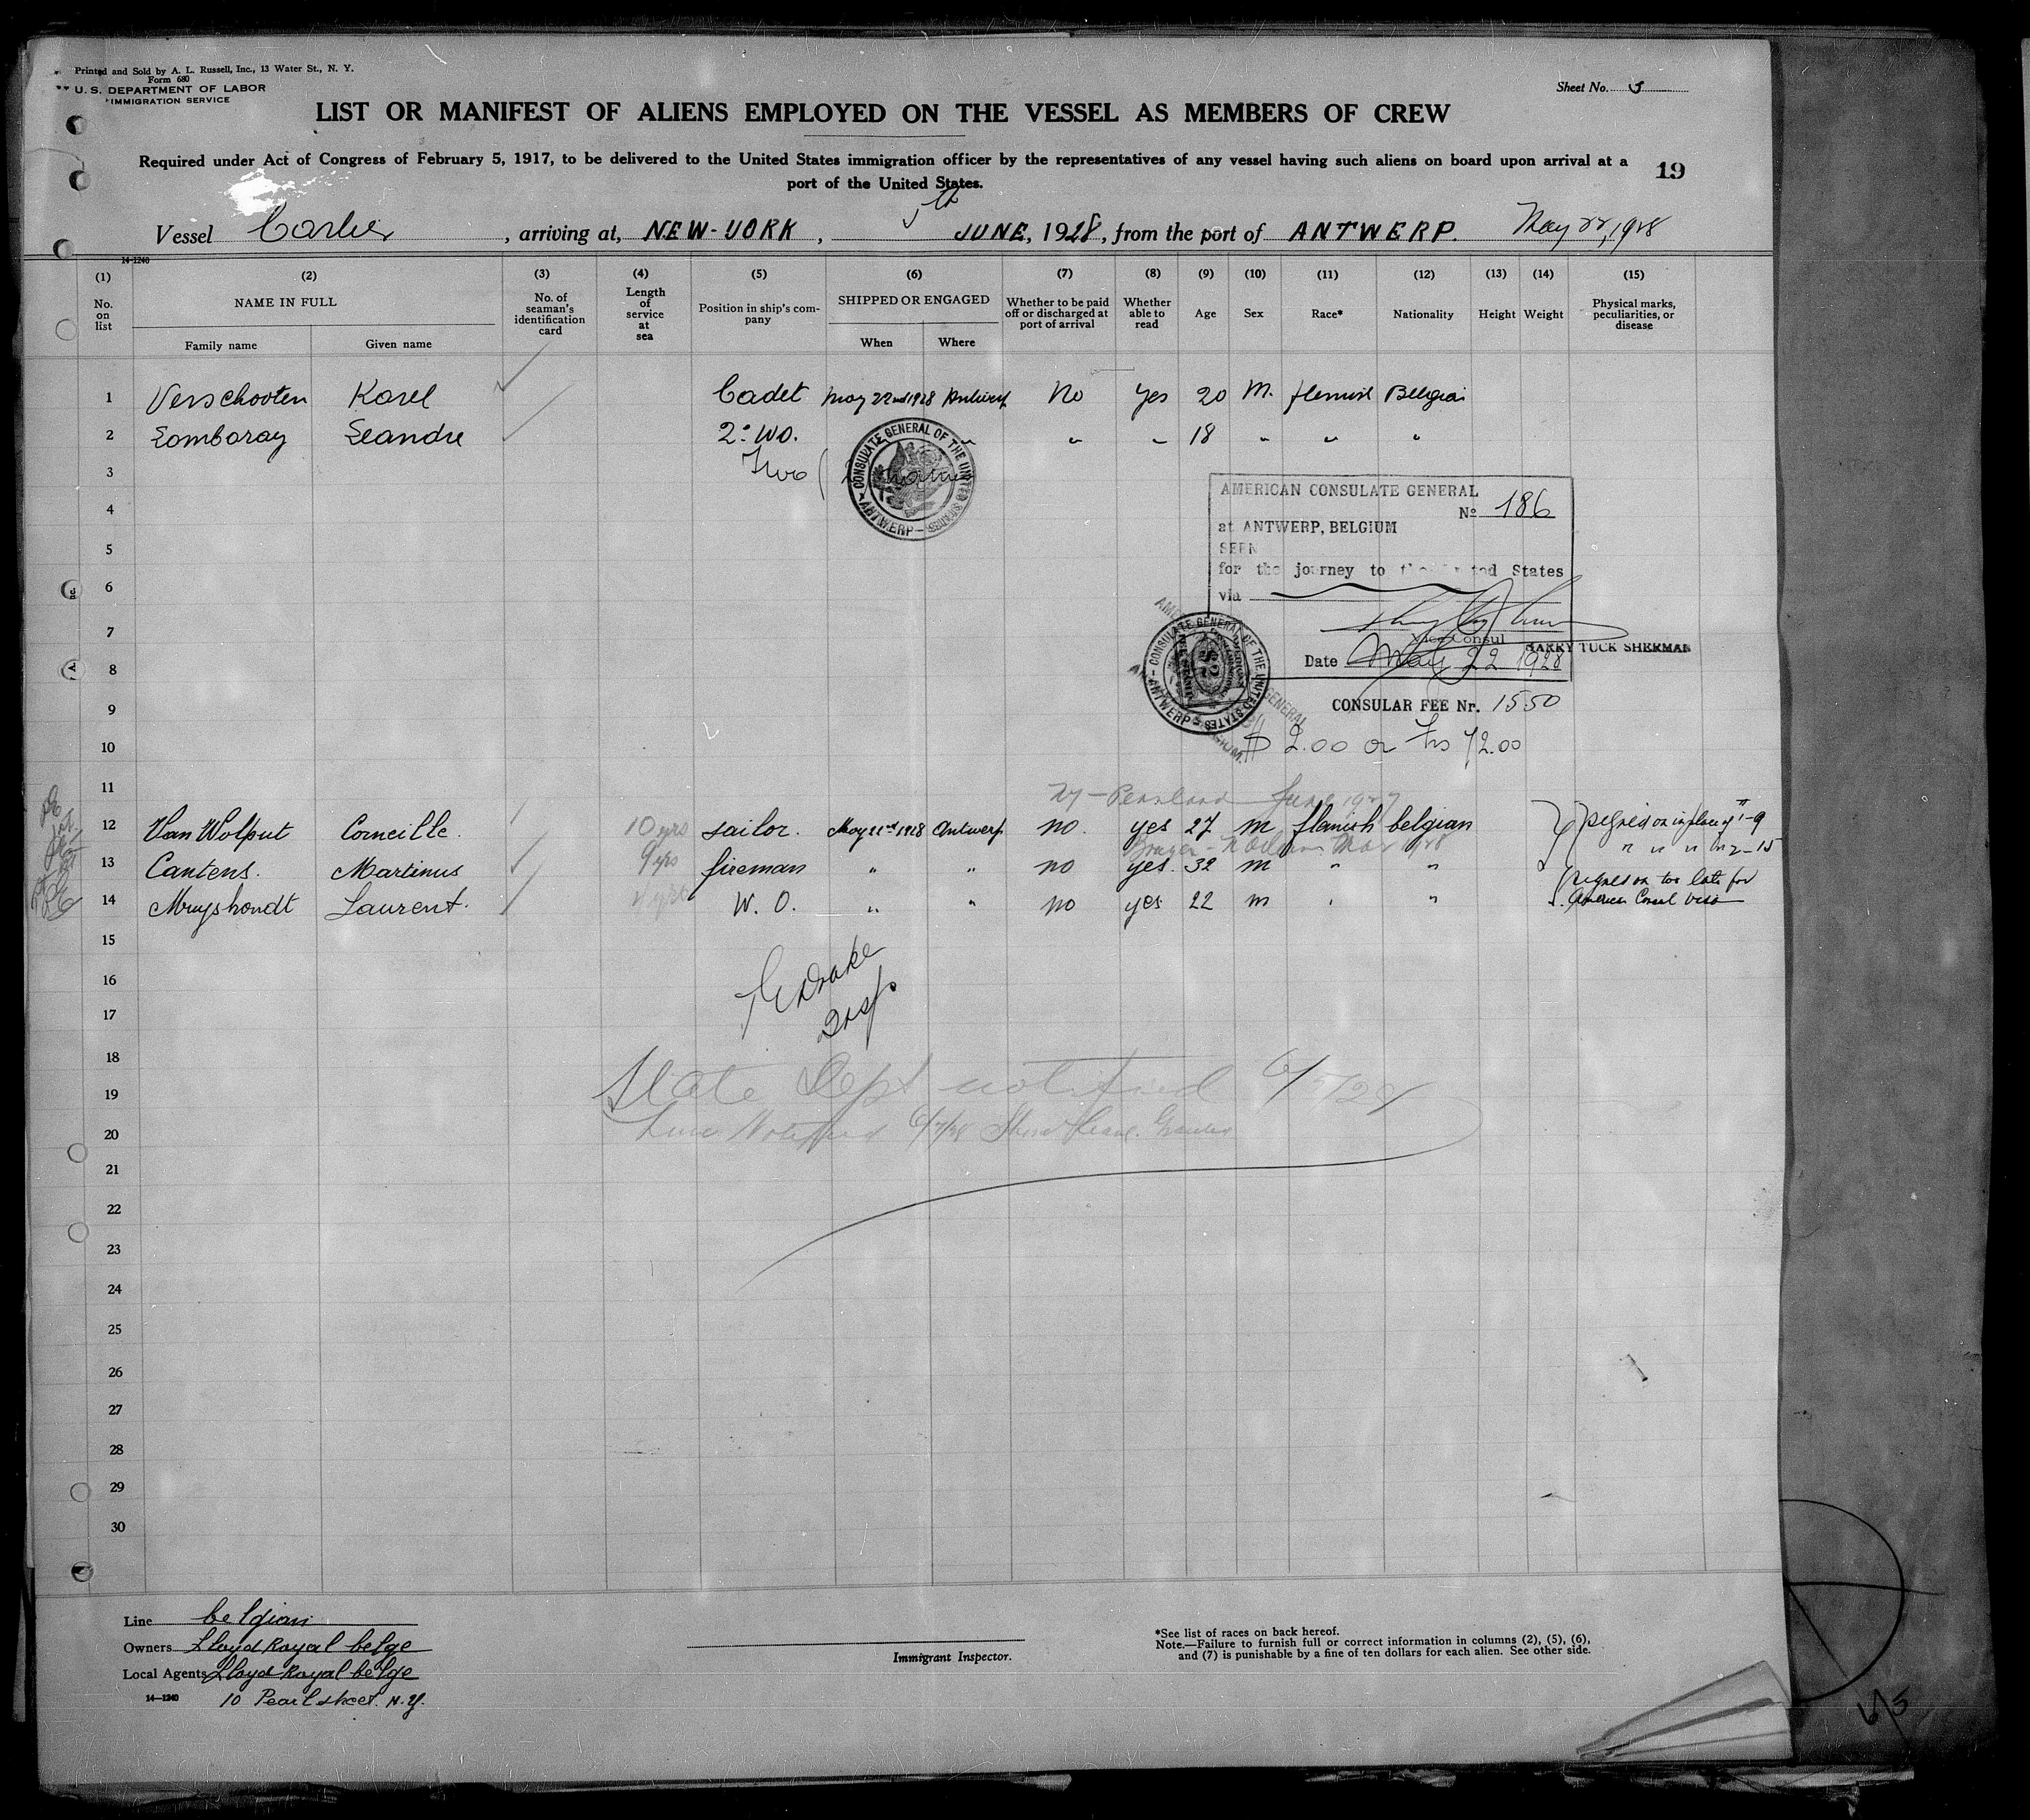 Printed and Sold by A. L. Russell, Inc., 13 Water St., N. Y.
Form 680
U. S. DEPARTMENT OF LABOR
IMMIGRATION SERVICE
Sheet No.
LIST OR MANIFEST OF ALIENS EMPLOYED ON THE VESSEL AS MEMBERS OF CREW
Required under Act of Congress of February 5, 1917, to be delivered to the United States immigration officer by the representatives of any vessel having such aliens on board upon arrival at a
port of the United States.
19
Vessel Carlier, arriving at, NEW-YORK, 5th JUNE, 1928, from the port of ANTWERP. May 22, 1928
14-1240
(1) (2) (3) (4) (5) (6) (7) (8) (9) (10) (11) (12) (13) (14) (15)
No. on list
NAME IN FULL
Family name Given name
No. of seaman's identification card
Length of service at sea
Position in ship's company
SHIPPED OR ENGAGED
When Where
Whether to be paid off or discharged at port of arrival
Whether able to read
Age
Sex
Race*
Nationality
Height
Weight
Physical marks, peculiarities, or disease
1 Verschooten Karel Cadet May 22nd 1928 Antwerp No Yes 20 M. flemish Belgian
2 Leandre 2° WO. " " " 18 " " "
3 Two
4
5
6
7
8
9
10
11
CONSULATE GENERAL OF THE UNITED STATES ANTWERP
AMERICAN CONSULATE GENERAL
No 186
at ANTWERP, BELGIUM
SEEN
for the journey to the United States
via
Vice Consul
HARRY TUCK SHERMAN
Date May 22 1928
CONSULATE GENERAL OF THE UNITED STATES ANTWERP
CONSULAR FEE Nr. 1550
$ 2.00 or frs 72.00
NY - Pennland June 1927
12 Van Wolput Corneille. 10 yrs sailor. May 22nd 1928 Antwerp no. yes 27 m flamish belgian
13 Cantens. Martinus 9 yrs fireman " " no yes. 32 m " "
14 Mruyshondt Laurent. W. O. " " no yes 22 m " "
signed on too late for
American Consul visa
15
16
17
18
19
20
21
22
23
24
25
26
27
28
29
30
Drake
Insp
State Dept notified 6/5/28
Line Notified 6/7/28
Line belgian
Owners Lloyd Royal belge
Local Agents Lloyd Royal belge
14—1240 10 Pearl street. N.Y.
Immigrant Inspector.
*See list of races on back hereof.
Note.—Failure to furnish full or correct information in columns (2), (5), (6),
and (7) is punishable by a fine of ten dollars for each alien. See other side.
6/5